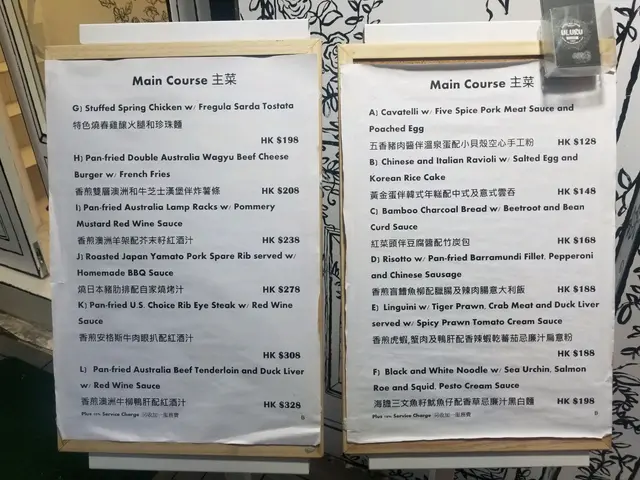 Main Course 主菜
G) Stuffed Spring Chicken w/ Fregula Sarda Tostata
特色燒春雞釀火腿和珍珠麵
HK $198
H) Pan-fried Double Australia Wagyu Beef Cheese
Burger w/ French Fries
香煎雙層澳洲和牛芝士漢堡伴炸薯條 HK $208
I) Pan-fried Australia Lamp Racks w/ Pommery
Mustard Red Wine Sauce
香煎澳洲羊架配芥末籽紅酒汁 HK $238
J) Roasted Japan Yamato Pork Spare Rib served w/
Homemade BBQ Sauce
燒日本豬肋排配自家燒烤汁 HK $278
K) Pan-fried U.S. Choice Rib Eye Steak w/ Red Wine
Sauce
香煎安格斯牛肉眼扒配紅酒汁
HK $308
L) Pan-fried Australia Beef Tenderloin and Duck Liver
w/ Red Wine Sauce
香煎澳洲牛柳鴨肝配紅酒汁 HK $328
Plus 10% Service Charge 另收加一服務費
ULUCU
Main Course 主菜
A) Cavatelli w/ Five Spice Pork Meat Sauce and
Poached Egg
五香豬肉醬伴溫泉蛋配小貝殼空心手工粉 HK $128
B) Chinese and Italian Ravioli w/ Salted Egg and
Korean Rice Cake
黃金蛋伴韓式年糕配中式及意式雲吞 HK $148
C) Bamboo Charcoal Bread w/ Beetroot and Bean
Curd Sauce
紅菜頭伴豆腐醬配竹炭包 HK $168
D) Risotto w/ Pan-fried Barramundi Fillet, Pepperoni
and Chinese Sausage
香煎盲鰽魚柳配臘腸及辣肉腸意大利飯 HK $188
E) Linguini w/ Tiger Prawn, Crab Meat and Duck Liver
served w/ Spicy Prawn Tomato Cream Sauce
香煎虎蝦,蟹肉及鴨肝配香辣蝦乾蕃茄忌廉汁扁意粉
HK $188
F) Black and White Noodle w/ Sea Urchin, Salmon
Roe and Squid, Pesto Cream Sauce
海膽三文魚籽魷魚仔配香草忌廉汁黑白麵 HK $198
Plus 10% Service Charge 另收加一服務費